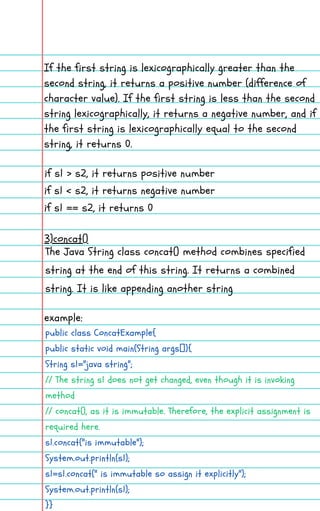 If the first string is lexicographically greater than the
second string, it returns a positive number (difference of
character value). If the first string is less than the second
string lexicographically, it returns a negative number, and if
the first string is lexicographically equal to the second
string, it returns 0.
if s1 > s2, it returns positive number
if s1 < s2, it returns negative number
if s1 == s2, it returns 0
3)concat()
The Java String class concat() method combines specified
string at the end of this string. It returns a combined
string. It is like appending another string
example:
public class ConcatExample{
public static void main(String args[]){
String s1="java string";
// The string s1 does not get changed, even though it is invoking
method
// concat(), as it is immutable. Therefore, the explicit assignment is
required here.
s1.concat("is immutable");
System.out.println(s1);
s1=s1.concat(" is immutable so assign it explicitly");
System.out.println(s1);
}}